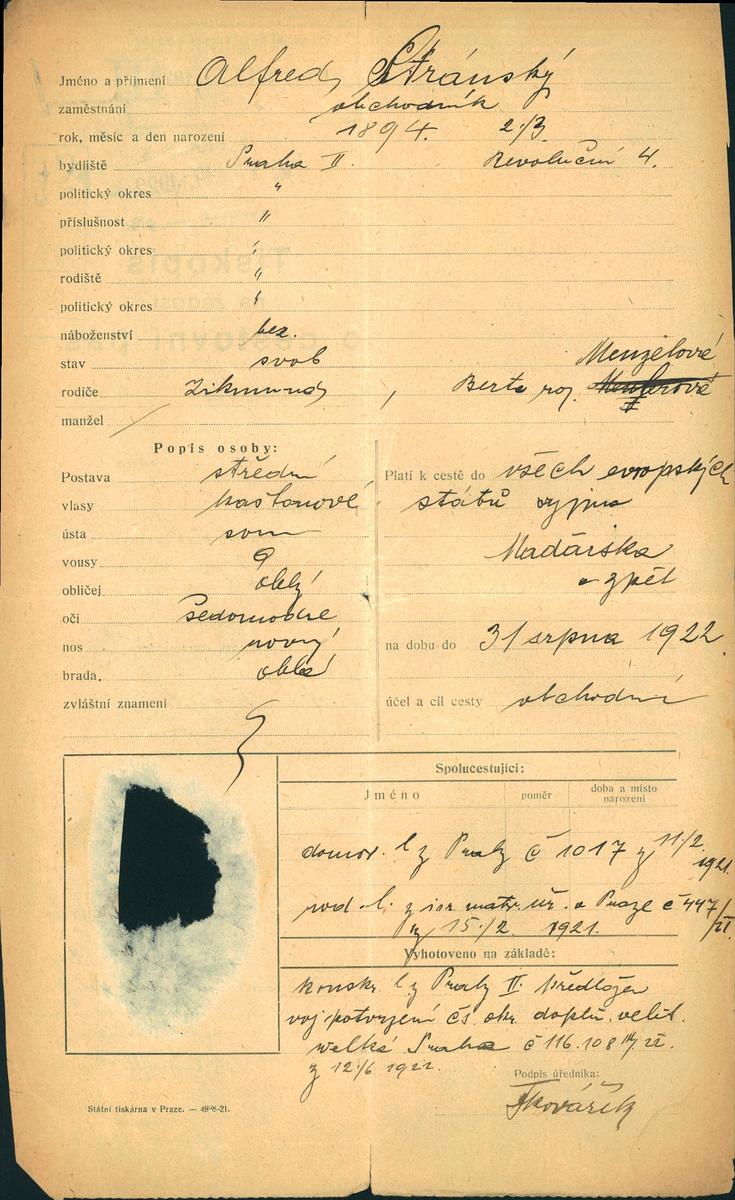 Jméno a příjmení Alfred Stránský
zaměstnání obchodník
rok, měsíc a den narození 1894. 2./3.
bydliště Praha II. Revoluční 4.
politický okres "
příslušnost "
politický okres "
rodiště "
politický okres "
náboženství bez.
stav svob
Menzelové
rodiče Zikmund, Berta roz.
manžel
Popis osoby:
Postava střední
vlasy kaštanové
ústa
vousy
obličej oblý
oči šedomodré
nos rovný
brada. oblá
zvláštní znamení
Platí k cestě do všech evropských
států vyjma
Maďarska
a zpět
na dobu do 31 srpna 1922.
účel a cíl cesty obchodní
Spolucestující:
Jméno poměr doba a místo narození
domov. l z Prahy č 1017 z 11/2. 1921.
rod. l. z isr. matr. úř. v Praze č 447/II
z 15./2. 1921.
Vyhotoveno na základě:
konskr. l z Prahy II. Předložen
voj. potvrzení čs okr. doplň. velit.
velká Praha č 116.108
z 12./6 1922.
Podpis úředníka:
Kovářík
Státní tiskárna v Praze. —